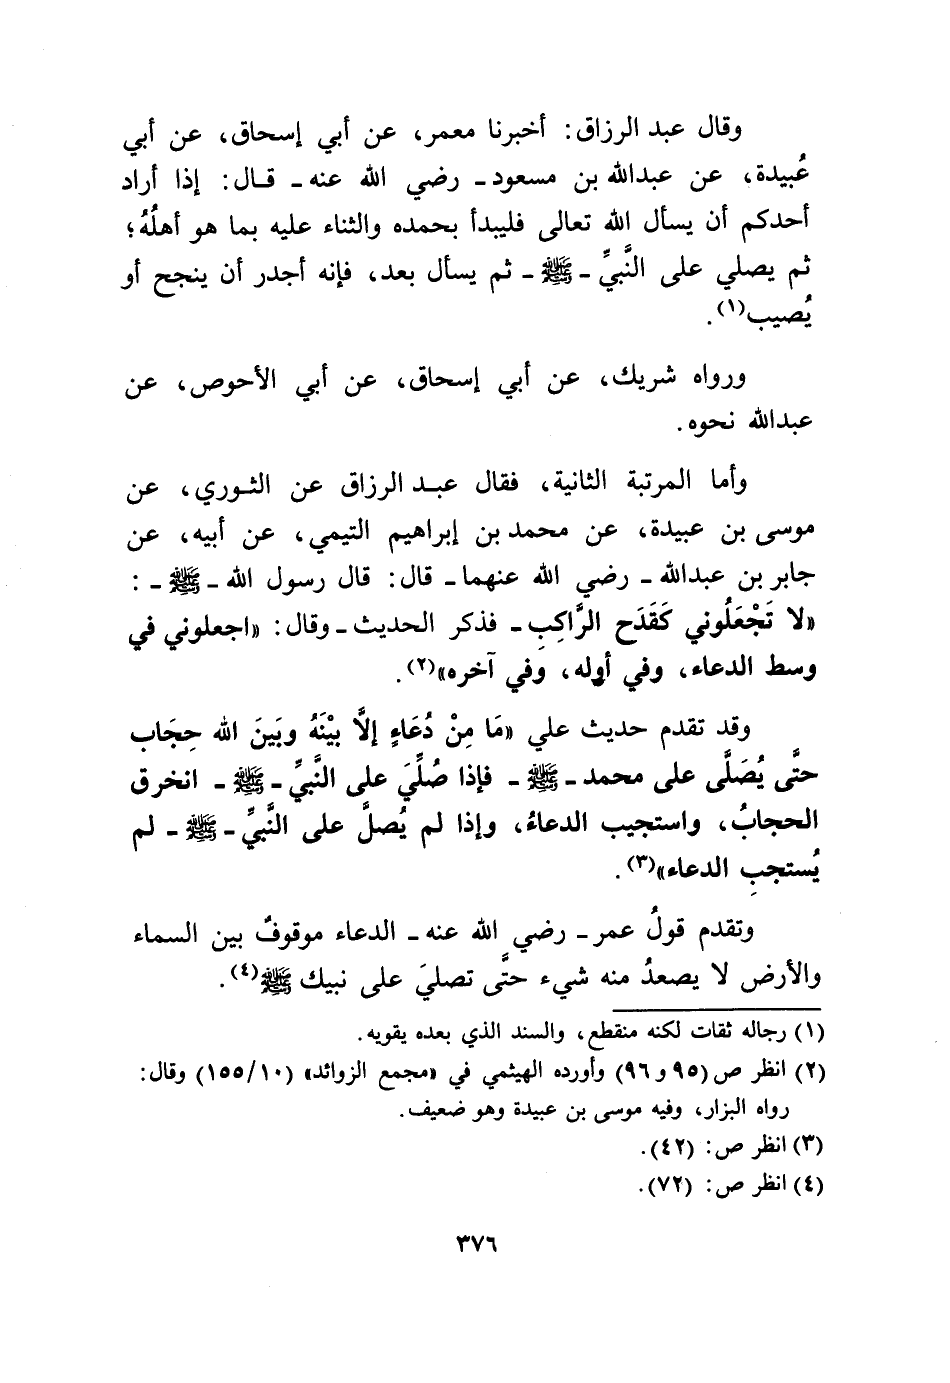 وقال عبد الرزاق: أخبرنا معمر، عن أبي إسحاق، عن أبي
عُبيدة، عن عبدالله بن مسعود - رضي الله عنه - قال: إذا أراد
أحدكم أن يسأل الله تعالى فليبدأ بحمده والثناء عليه بما هو أهلُهُ؛
ثم يصلي على النَّبيِّ - ﷺ - ثم يسأل بعد، فإنه أجدر أن ينجح أو
يُصيب(١).
ورواه شريك، عن أبي إسحاق، عن أبي الأحوص، عن
عبدالله نحوه.
وأما المرتبة الثانية، فقال عبد الرزاق عن الثوري، عن
موسى بن عبيدة، عن محمد بن إبراهيم التيمي، عن أبيه، عن
جابر بن عبدالله - رضي الله عنهما - قال: قال رسول الله - ﷺ - :
«لا تَجْعَلُوني كَقَدَح الرَّاكِبِ - فذكر الحديث - وقال: «اجعلوني في
وسط الدعاء، وفي أوله، وفي آخره»(٢).
وقد تقدم حديث علي «مَا مِنْ دُعَاءٍ إلاَّ بيْنَهُ وبَينَ الله حِجَاب
حتَّى يُصَلَّى على محمد - ﷺ - فإذا صُلِّيَ على النَّبيِّ - ﷺ - انخرق
الحجابُ، واستجيب الدعاءُ، وإذا لم يُصلَّ على النَّبيِّ - ﷺ - لم
يُستجبِ الدعاء»(٣).
وتقدم قولُ عمر - رضي الله عنه - الدعاء موقوفٌ بين السماء
والأرض لا يصعدُ منه شيء حتَّى تصليَ على نبيك ﷺ(٤).
(١) رجاله ثقات لكنه منقطع، والسند الذي بعده يقويه.
(٢) انظر ص (٩٥ و ٩٦) وأورده الهيثمي في «مجمع الزوائد» (١٠/١٥٥) وقال:
رواه البزار، وفيه موسى بن عبيدة وهو ضعيف.
(٣) انظر ص: (٤٢).
(٤) انظر ص: (٧٢).
٣٧٦